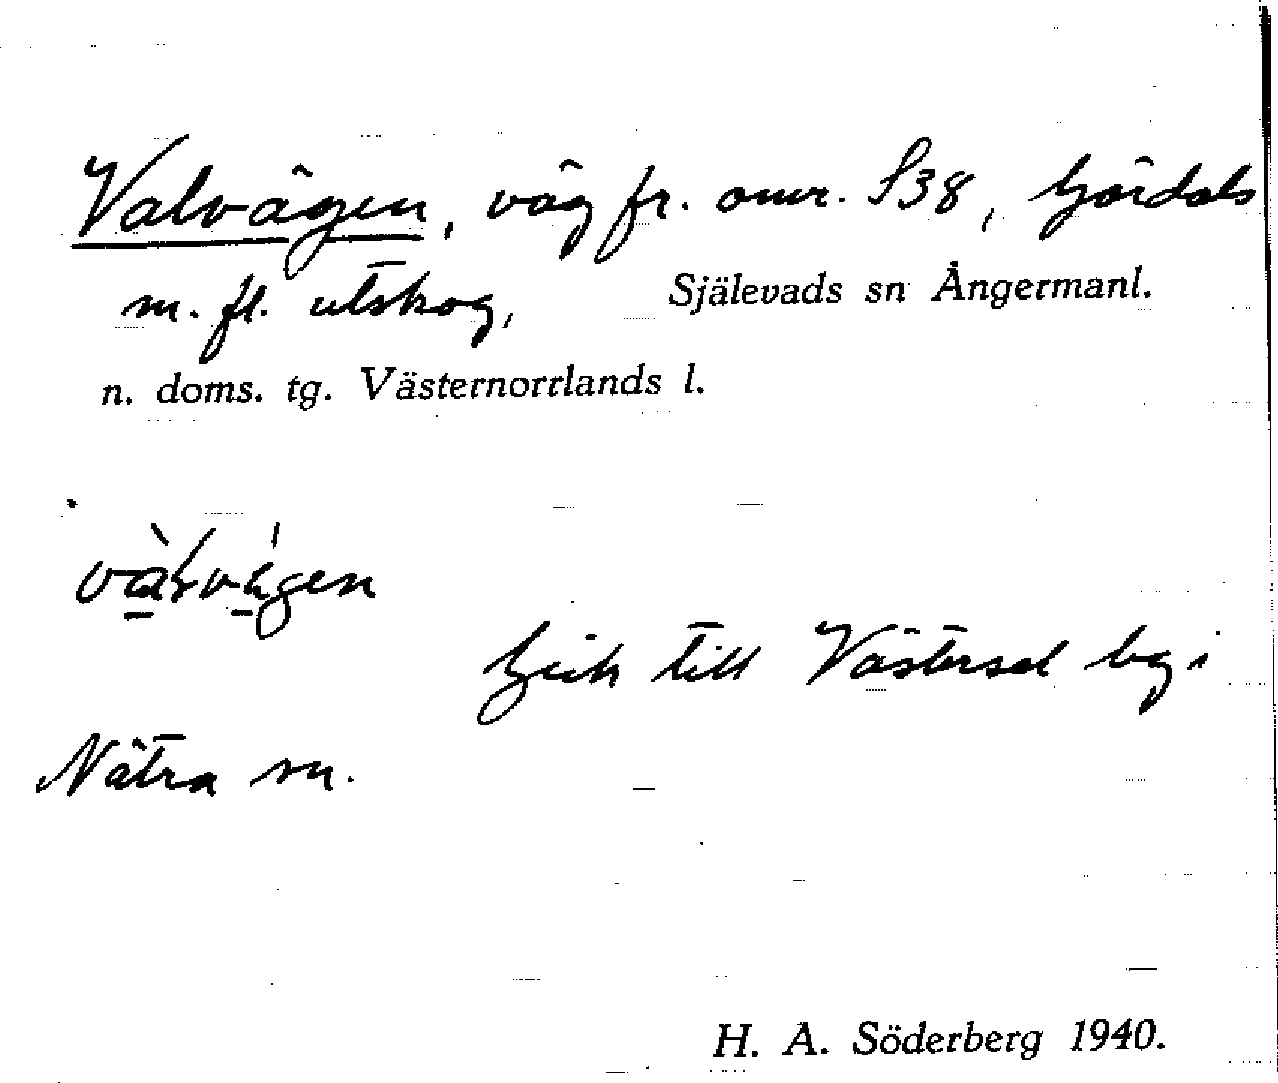 Valvägen, väg fr. omr. S38, Gördals
m. fl. utskog, Själevads sn Ångermanl.
n. doms. tg. Västernorrlands l.
vàlvä́gen
Gick till Västersel by i
Nätra sn.
H. A. Söderberg 1940.